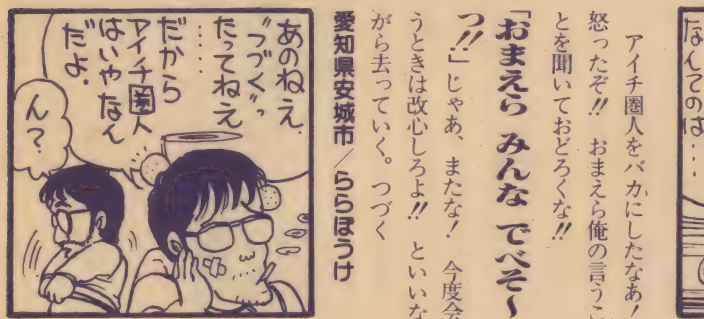 なんてのは・・・
アイチ圏人をバカにしたなあ!
怒ったぞ!! おまえら俺の言うこ
とを聞いておどろくな!!
「おまえら みんな でべそ〜
つ!!」じゃあ、またな! 今度会
うときは改心しろよ!! といいな
がら去っていく。つづく
愛知県安城市/ららぽうけ
あのねえ、
〝つづく〟っ
たってねえ
・・・・
だから
アイチ圏人
はいやなん
だよ.
ん?